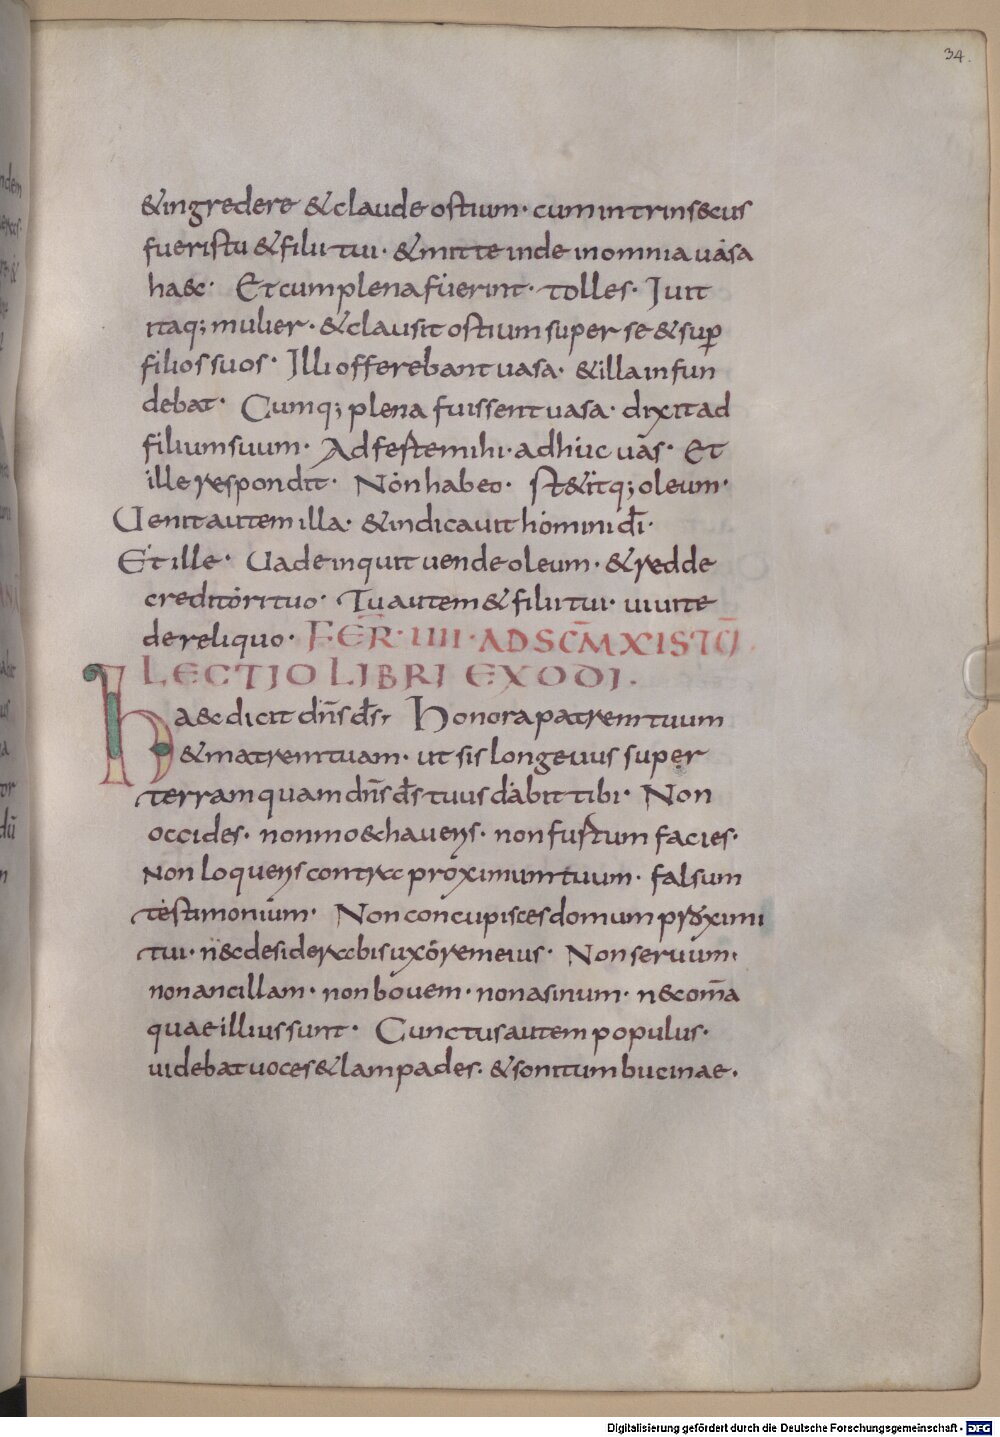 34.
& ingredere & claude ostium· cum intrins&cus
fueris tu & filii tui· & mitte inde in omnia uasa
ha&c· Et cum plena fuerint· tolles· Iuit
itaq; mulier· & clausit ostium super se & suꝑ
filios suos· Illi offerebant uasa· & illa infun
debat· Cumq; plena fuissent uasa· dixit ad
filium suum· Adfeste mihi· adhuc uas· Et
ille respondit· Non habeo· St&itq; oleum·
Uenit autem illa· & indicauit homini dī·
Et ille· Uade inquit uende oleum· & redde
creditori tuo· Tu autem & filii tui· uiuite
de reliquo· FER̄· IIII· AD SC̄M XISTŪ
LECTIO LIBRI EXODI·
ha&c dicit dn̄s ds̄· Honora patrem tuum
& matrem tuam· ut sis longeuus super
terram quam dn̄s ds̄ tuus dabit tibi· Non
occides· non mo&chaueris· non fustum facies·
Non loqueris contra proximum tuum· falsum
testimonium· Non concupisces domum proximi
tui· n&c desiderabis uxorem eius· Non seruum·
non ancillam· non bouem· non asinum· n&c om̄a
quae illius sunt· Cunctus autem populus·
uidebat uoces & lampades· & sonitum bucinae·
Digitalisierung gefördert durch die Deutsche Forschungsgemeinschaft - DFG